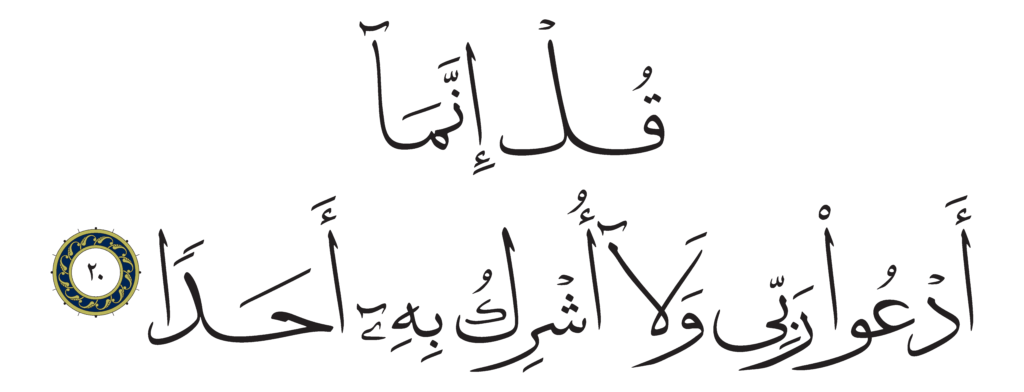 قُلۡ إِنَّمَآ
أَدۡعُواْ رَبِّي وَلَآ أُشۡرِكُ بِهِۦٓ أَحَدٗا ٢٠